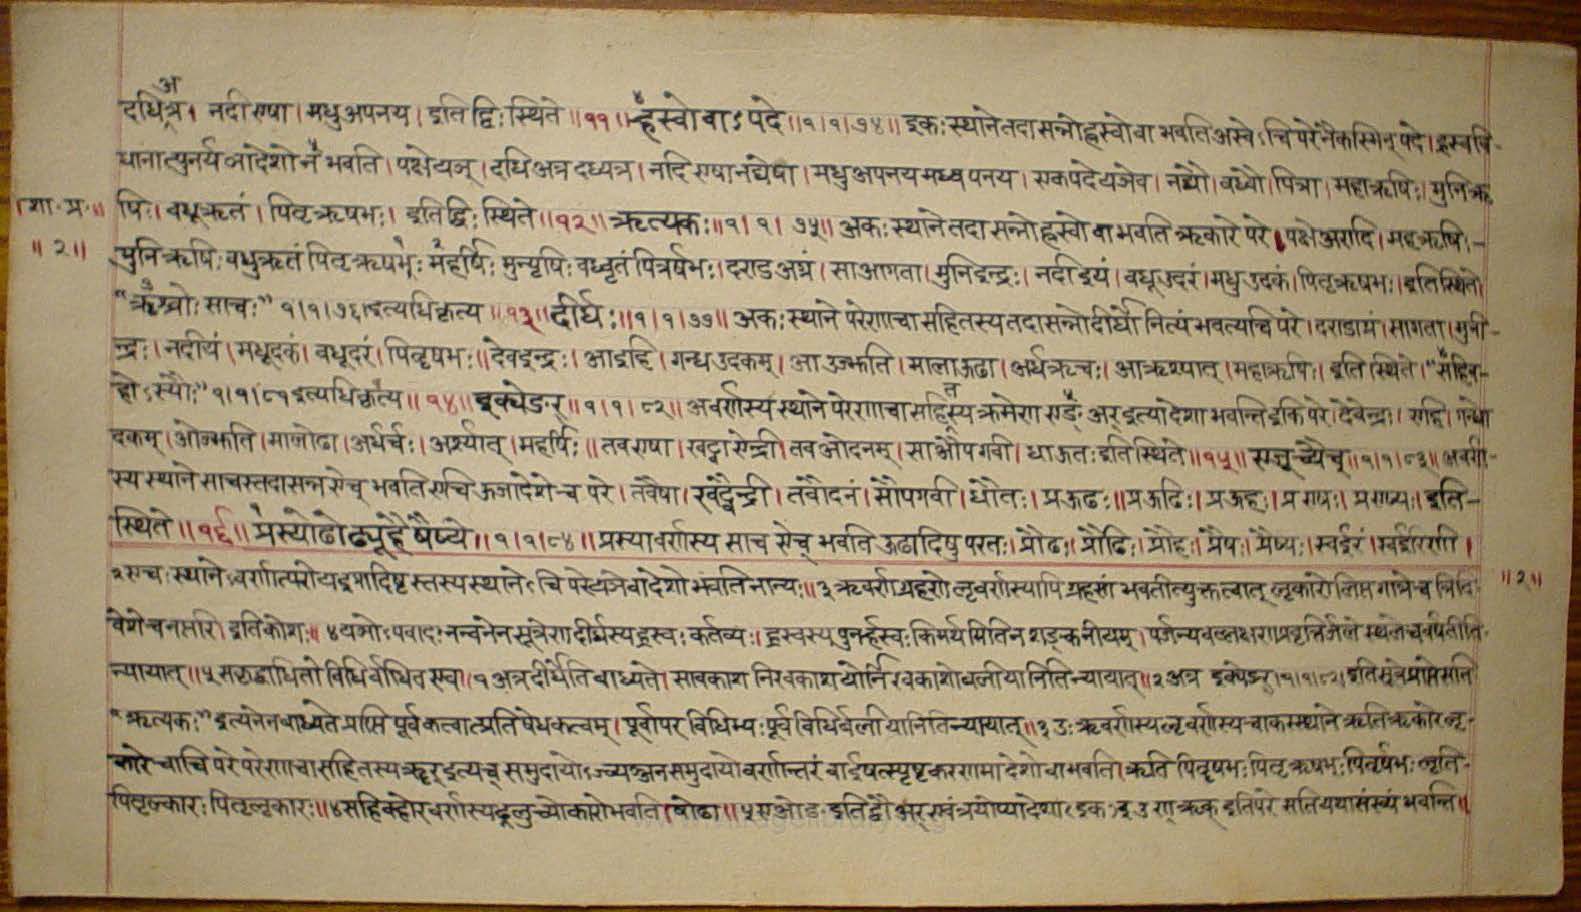 अ
दधि अत्र। नदी एषा। मधु अपनय। इति द्विः स्थिते॥११॥ ह्रस्वो वाऽपदे॥१।१।७४॥ इकः स्थाने तदासन्नो ह्रस्वो वा भवति अस्वेऽचि परे नैकस्मिन् पदे। ह्रस्ववि-
धानात्पुनर्यञादेशो न भवति। पक्षे यञ्। दधि अत्र दध्यत्र। नदि एषा नद्येषा। मधु अपनय मध्वपनय। एकपदे यञेव। नद्यौ। वध्वौ। पित्रा। महाऋषिः। मुनि ऋ
षिः। वधूऋतं। पितृ ऋषभः। इति द्विः स्थिते॥१२॥ ऋत्यकः॥१।१।७५॥ अकः स्थाने तदासन्नो ह्रस्वो वा भवति ऋकारे परे। पक्षे अरादि। महऋषिः-
शा॰प्र॰॥
॥२॥
मुनि ऋषिः वधुऋतं पितृ ऋषभः महर्षिः मुन्यृषिः वध्वृतं पित्रर्षभः। दण्ड अग्रं। सा आगता। मुनि इन्द्रः। नदी इयं। वधू उदरं। मधु उदकं। पितृ ऋषभः। इति स्थिते।
साचः" १।१।७६। इत्यधिकृत्य॥१३॥ दीर्घः॥१।१।७७॥ अकः स्थाने परेणाचा सहितस्य तदासन्नो दीर्घो नित्यं भवत्यचि परे। दण्डाग्रं। सागता। मुनी-
न्द्रः। नदीयं। मधूदकं। वधूदरं। पितॄषभः॥ देव इन्द्रः। आ इहि। गन्ध उदकम्। आ उज्झति। माला ऊढा। अर्ध ऋचः। आ ऋश्यात्। महा ऋषिः। इति स्थिते।
१।१।८१ इत्यधिकृत्य॥१४॥ इक्येङर्॥१।१।८२॥ अवर्णस्य स्थाने परेणाचा सहितस्य क्रमेण एङ् अर् इत्यादेशा भवन्ति इकि परे। देवेन्द्रः। एहि। गन्धो
दकम्। ओज्झति। मालोढा। अर्धर्चः। अर्श्यात्। महर्षिः॥ तव एषा। खट्वा ऐन्द्री। तव ओदनम्। सा औपगवी। धा ऊतः इति स्थिते॥१५॥ एजूच्यैच्॥१।१।८३॥ अवर्ण-
स्य स्थाने साचस्तदासन्न ऐच् भवति एचि ऊजादेशे च परे। तवैषा। खट्वैन्द्री। तवौदनं। सौपगवी। धौतः। प्र ऊढः॥ प्र ऊढिः। प्र ऊहः। प्र एषः। प्र एष्यः। इति-
स्थिते॥१६॥ प्रस्योढोढ्यूहैषैष्ये॥१।१।८४॥ प्रस्यावर्णस्य साच ऐच् भवति ऊढादिषु परतः। प्रौढः। प्रौढिः। प्रौहः। प्रैषः। प्रैष्यः। स्व ईरं। स्व ईरिणी।
स्थाने वर्णात्परो स्तस्य स्थानेऽचि परे यञेवादेशो भवति नान्यः॥३ ऋवर्णग्रहणे लृवर्णस्यापि ग्रहणं भवतीत्युक्तत्वात् लृकारो
॥२॥
इति कोशः॥४ यञोऽपवादः नन्वनेन सूत्रेण दीर्घस्य ह्रस्वः कर्तव्यः। ह्रस्वस्य पुनर्ह्रस्वः किमर्थमिति न शङ्कनीयम्। पर्जन्यवल्लक्षणप्रवृत्तिर्जले स्थले च वर्षतीति-
न्यायात्॥५ सकृद्बाधितो विधिर्बाधित एव॥१ अत्र दीर्घेति बाध्यते। सावकाशनिरवकाशयोर्निरवकाशो बलीयानिति न्यायात्॥२ अत्र इक्येङर्।१।१।८२। इति सूत्रे प्राप्ते सति
"ऋत्यकः" इत्यनेन बाध्यते प्राप्ति पूर्वकत्वात्प्रतिषेधकत्वम्। पूर्वापरविधिभ्यः पूर्वविधिर्बलीयानिति न्यायात्॥३ ऋवर्णस्य लृवर्णस्य चाकस्स्थाने ऋति ऋकारे लृ-
कारे चाचि परे परेणाचा सहितस्य इत्यच् समुदायो वर्णान्तरं वा ईषत्स्पृष्टकरणमादेशो वा भवति। ऋति पितॄषभः पितृ ऋषभः पितर्षभः लृति-
पितृलृकारः॥४ सहिवहोरवर्णस्य भवति। षोढा॥५ एओङ् इति द्वौ अर् एवं त्रयोप्यादेशाः इकः इ उ ण् ऋक् इति परे सति यथासंख्यं भवन्ति॥